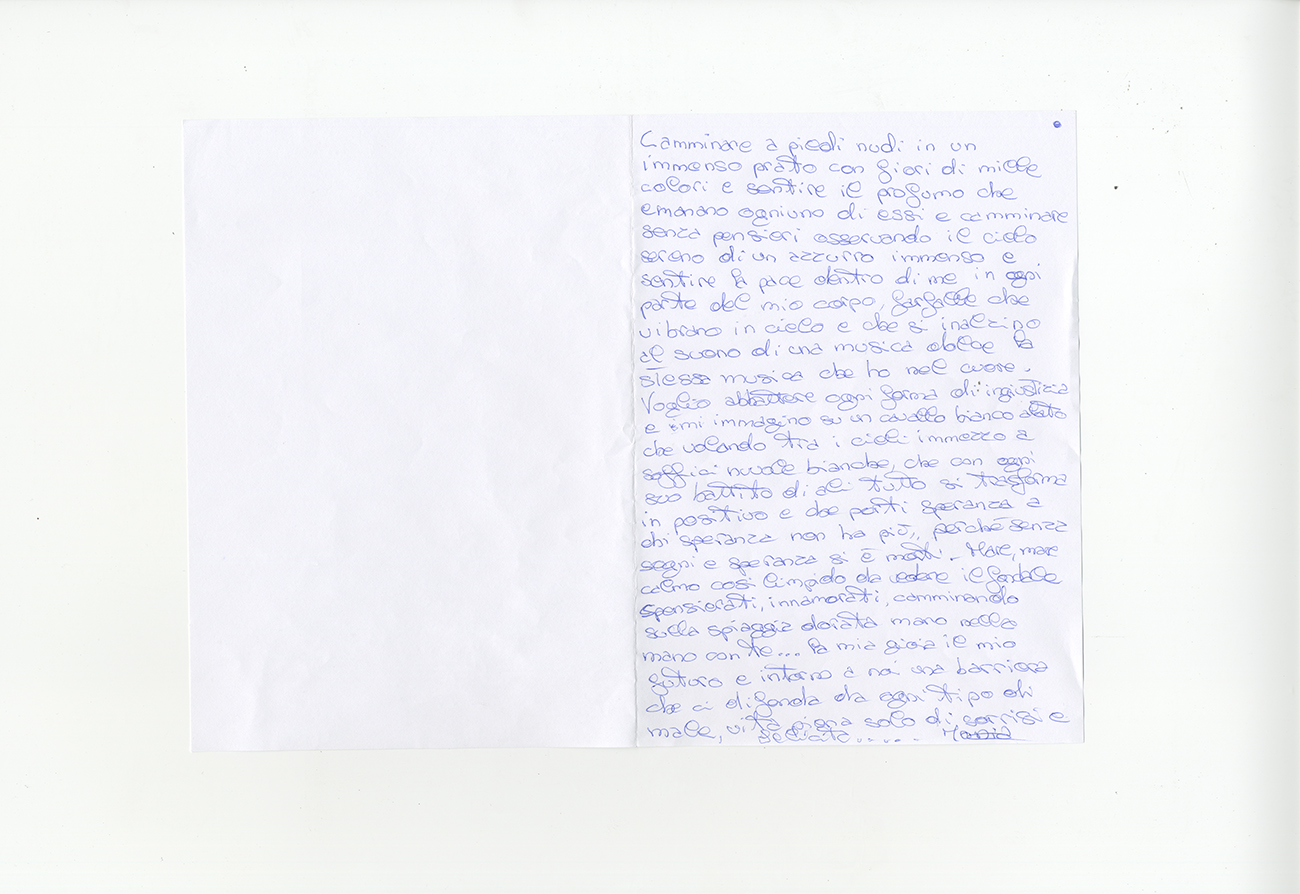 Camminare a piedi nudi in un
immenso prato con fiori di mille
colori e sentire il profumo che
emanano ogniuno di essi e camminare
senza pensieri osservando il cielo
sereno di un azzurro immenso e
sentire la pace dentro di me in ogni
parte del mio corpo, farfalle che
vibrano in cielo e che si inalzino
al suono di una musica dolce la
stessa musica che ho nel cuore.
Voglio abbattere ogni forma di ingiustizia
e mi immagino su un cavallo bianco alato
che volando tra i cieli immezzo a
soffici nuvole bianche, che con ogni
suo battito di ali tutto si trasforma
in positivo e che porti speranza a
chi speranza non ha più, perché senza
segni e speranza si è morti. Mare, mare
calmo così limpido da vedere il fondale
spensierati, innamorati, camminando
sulla spiaggia dorata mano nella
mano con te... la mia gioia il mio
futuro e intorno a noi una barriera
che ci difenda da ogni tipo di
male, vita piena solo di sorrisi e